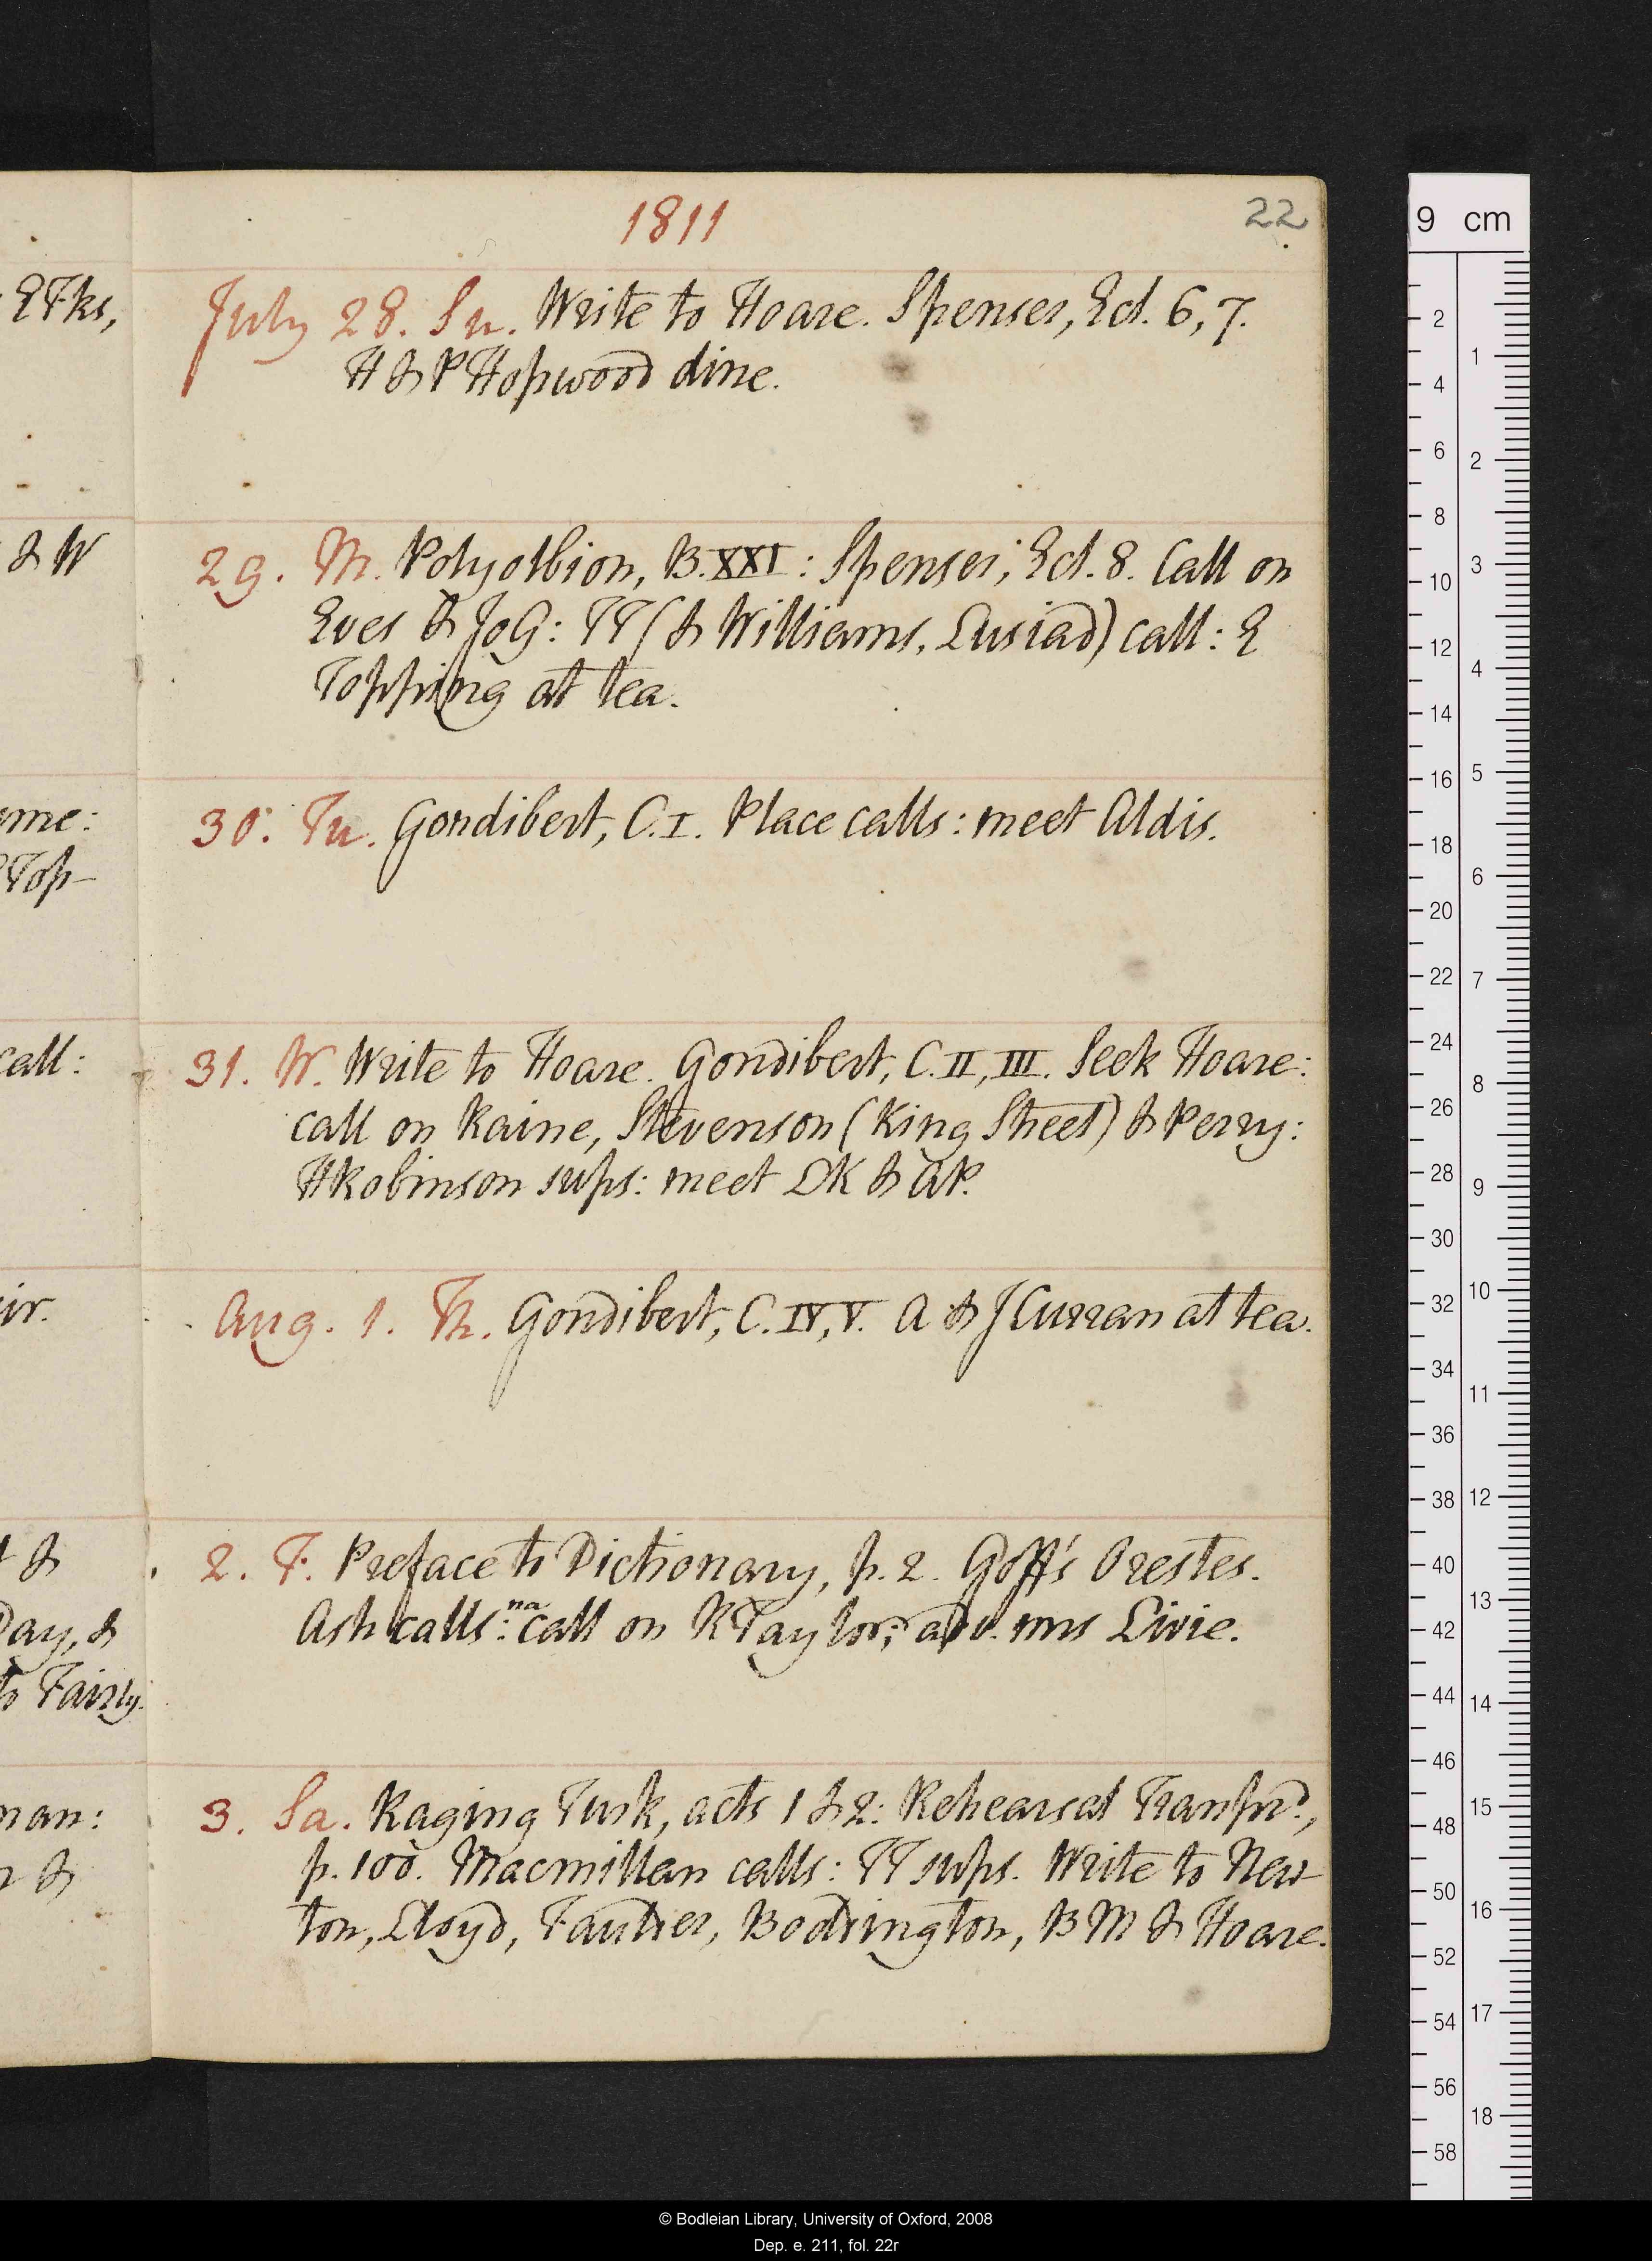 1811
22
July 28. Su. Write to Hoare. Spenser, Ecl. 6, 7.
H & P Hopwood dine.
29. M. Polyolbion, B. XXI: Spenser, Ecl. 8. Call on
Eves & JoG: TT (& Williams, Lusiad) call: E
Topping at tea.
30. Tu. Gondibert, C. I. Place calls: meet Aldis.
31. W. Write to Hoare. Gondibert, C. II, III. Seek Hoare:
call on Raine, Stevenson (King Street) & Perry:
H Robinson sups: meet DK & AP.
Aug. 1. Th. Gondibert, C. IV, V. A & J Curran at tea.
2. F. Preface to Dictionary, p. 2. Goff's Orestes.
Ash calls: na call on R Taylor; adv. mrs Livie.
3. Sa. Raging Turk, acts 1 & 2: Rehearsal Transpr^d.,
p. 100. Macmillan calls: TT sups. Write to New-
ton, Lloyd, Faulder, Boddington, BM & Hoare.
E Fks,
& W
ame:
Top-
call:
ir.
t &
Day, &
to Fairly.
man:
n &
9 cm
2
4
6
8
10
12
14
16
18
20
22
24
26
28
30
32
34
36
38
40
42
44
46
48
50
52
54
56
58
1
2
3
4
5
6
7
8
9
10
11
12
13
14
15
16
17
18
© Bodleian Library, University of Oxford, 2008
Dep. e. 211, fol. 22r